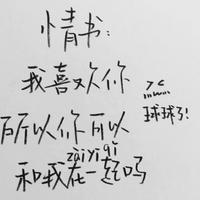 情书:
我喜欢你
所以你可以
zài yì qǐ
和我在一起吗
><
球球了!